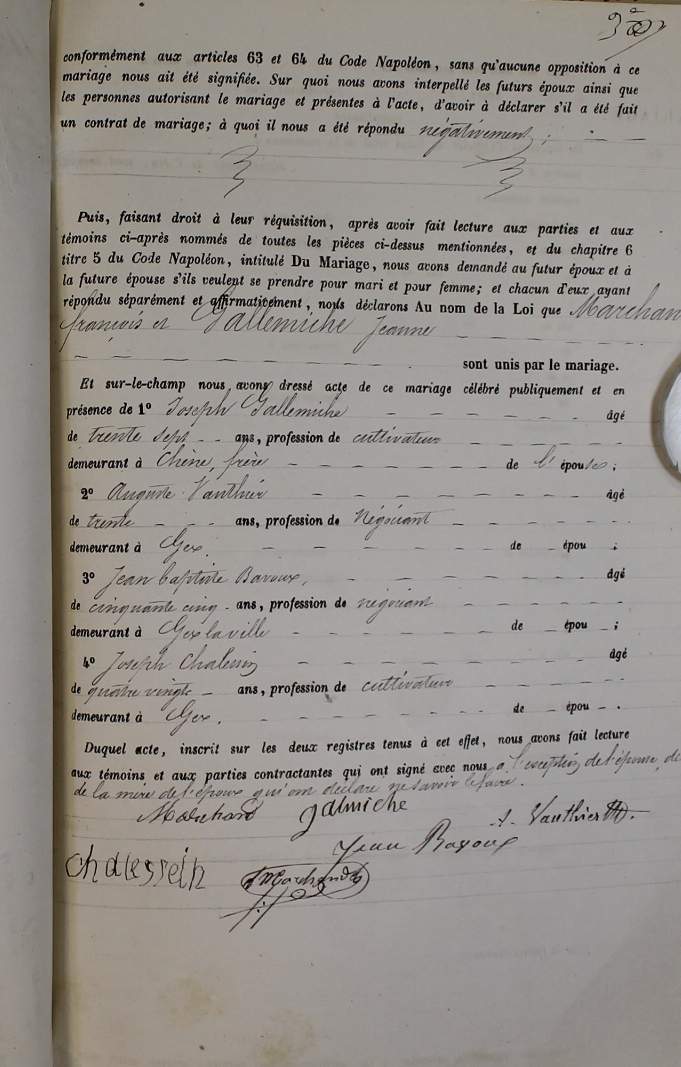 conformément aux articles 63 et 64 du Code Napoléon, sans qu'aucune opposition à ce
mariage nous ait été signifiée. Sur quoi nous avons interpellé les futurs époux ainsi que
les personnes autorisant le mariage et présentes à l'acte, d'avoir à déclarer s'il a été fait
un contrat de mariage; à quoi il nous a été répondu négativement;
Puis, faisant droit à leur réquisition, après avoir fait lecture aux parties et aux
témoins ci-après nommés de toutes les pièces ci-dessus mentionnées, et du chapitre 6
titre 5 du Code Napoléon, intitulé Du Mariage, nous avons demandé au futur époux et à
la future épouse s'ils veulent se prendre pour mari et pour femme; et chacun d'eux ayant
répondu séparément et affirmativement, nous déclarons Au nom de la Loi que Marchan
françois et Gallemiche Jeanne
sont unis par le mariage.
Et sur-le-champ nous avons dressé acte de ce mariage célébré publiquement et en
présence de 1° Joseph Gallemiche âgé
de trente sept ans, profession de cultivateur
demeurant à Chêne, frère de l'épouse;
2° Auguste Vauthier âgé
de trente ans, profession de Négociant
demeurant à Gex. de épou ;
3° Jean baptiste Bavoux, âgé
de cinquante cinq ans, profession de négociant
demeurant à Gex la ville de épou ;
4° Joseph Chalessin âgé
de quatre vingts ans, profession de cultivateur
demeurant à Gex. de épou .
Duquel acte, inscrit sur les deux registres tenus à cet effet, nous avons fait lecture
aux témoins et aux parties contractantes qui ont signé avec nous à l'exception de l'épouse, de
de la mère de l'époux qui ont déclaré ne savoir le faire.
Marchand galmiche A. Vauthier
Jean Bavoux
chalessein Marchand